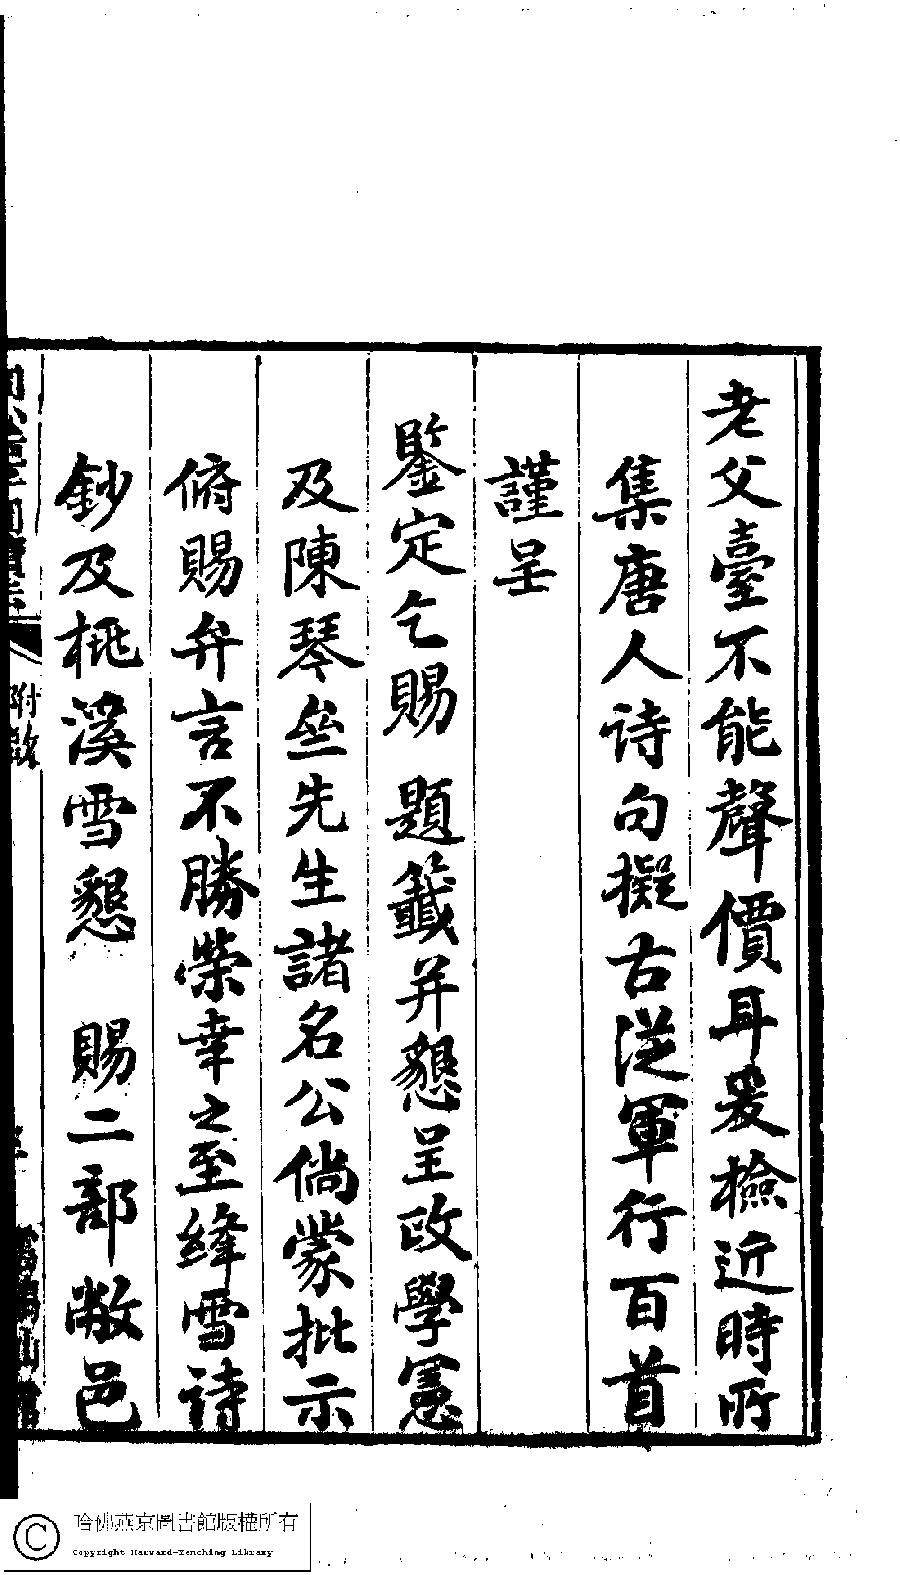 老父臺不能聲價耳爰檢近時所
集唐人詩句擬古從軍行百首
謹呈
鑒定乞賜 題籤并懇呈政學憲
及陳琴垒先生諸名公倘蒙批示
俯賜弁言不勝榮幸之至絳雪詩
鈔及桃溪雪懇 賜二部敝邑
附啟
哈佛燕京圖書館版權所有
Copyright Harvard-Yenching Library